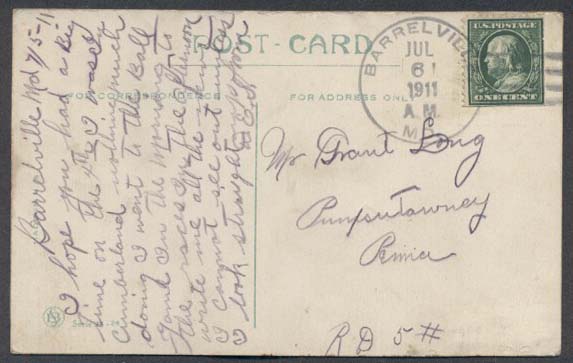 POST - CARD
FOR CORRESPONDENCE
FOR ADDRESS ONLY
BARRELVILLE
JUL
6
1911
A.M.
MD.
U.S. POSTAGE
ONE CENT
Barrelville Md 7/5-11
I hope you had a big
time on the 4th I was at
Cumberland nothing much
doing I went to the Ball
Game in the morning &
the races in the afternoon
write me all the news
I cannot see out
I look straight
Mr Grant Long
Punxsutawney
Penna
RD 5 #